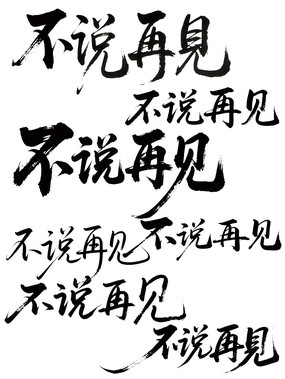 不说再見
不说再见
不说再见
不说再见
不说再见
不说再见
不说再見